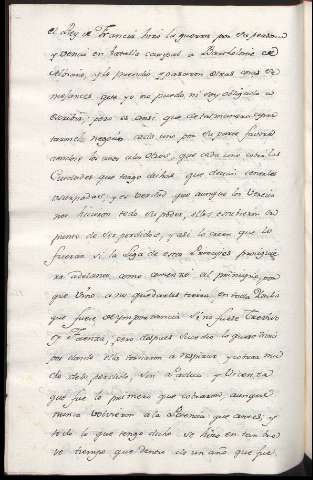 el Rey de Francia hizo la guerra por su persona
y vencio en batalla campal a Bartholome de
Albiano, y lo prendio, y pasaron otras cosas se-
mejantes que yo no puedo, ni soy obligado a
escribir; pero es assi que de tal manera se
negozio, cada uno por su parte
los unos a los otros, que cada uno cobro las
Ciudades que tengo dichas, que decian tenerles
ocupadas, y es verdad que aunque los Venecia
nos hicieron todo su poder, ellos estuvieron a
punto de ser perdidos, y assi lo creen que lo
fueran si la Liga de estos Principes prosiguie
ra adelante como comenzó al principio, por
que vino a no quedarles tierra, en toda Italia
que fuese de importancia sino fuese Treviso
y Faenza, pero despues sucedio lo que se dirá
por donde ella tornaron a respirar, y cobrar mu
cho de lo perdido, sin Padua y Vicenza
que fue lo primero que cobraron, aunque
nunca volvieron a la Potencia que antes; y
todo lo que tengo dicho se hizo en tan bre
ve tiempo que dentro de un año que fue